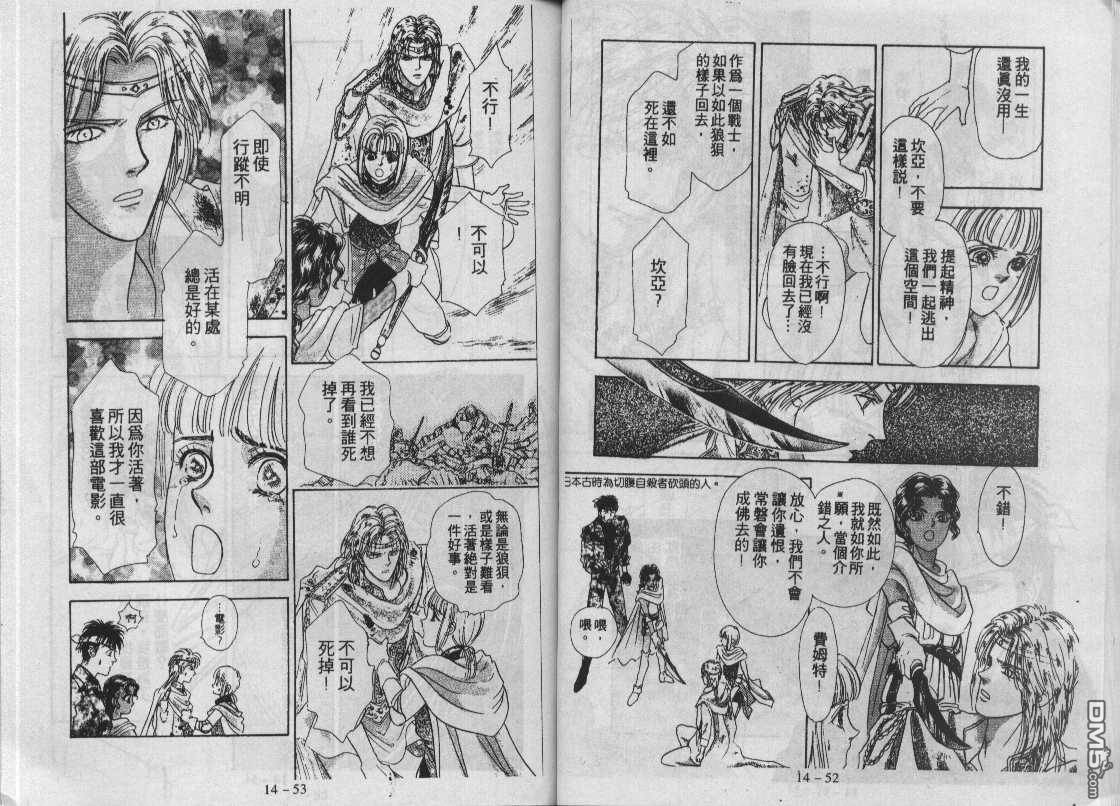 我的一生
還眞沒用—
坎亞，不要
這樣說！
提起精神，
我們一起逃出
這個空間！
…不行啊！
現在我已經沒
有臉回去了…
作爲一個戰士，
如果以如此狼狽
的樣子回去，
還不如
死在這裡。
坎亞？
不錯！
既然如此，
我就如你所
願，當個介
錯之人。
＊
放心，我們不會
讓你遺恨，
常磐會讓你
成佛去的！
日本古時為切腹自殺者砍頭的人。
費姆特！
喂，
喂。
14－52
不行！
不可以
！
即使
行蹤不明—
活在某處
總是好的。
我已經不想
再看到誰死
掉了。
因爲你活著，
所以我才一直很
喜歡這部電影。
無論是狼狽，
或是樣子難看
，活著絕對是
一件好事。
不可以
死掉！
…電影？
啊
14－53
DM5.com